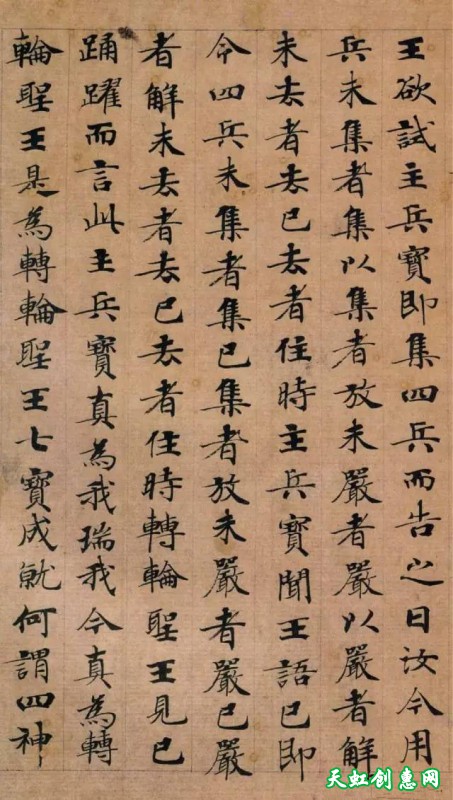 王欲試主兵寶即集四兵而告之曰汝今用
兵未集者集以集者放未嚴者嚴以嚴者解
未去者去已去者住時主兵寶聞王語已即
令四兵未集者集已集者放未嚴者嚴已嚴
者解未去者去已去者住時轉輪聖王見已
踊躍而言此主兵寶真為我瑞我今真為轉
輪聖王是為轉輪聖王七寶成就何謂四神
天虹创惠网